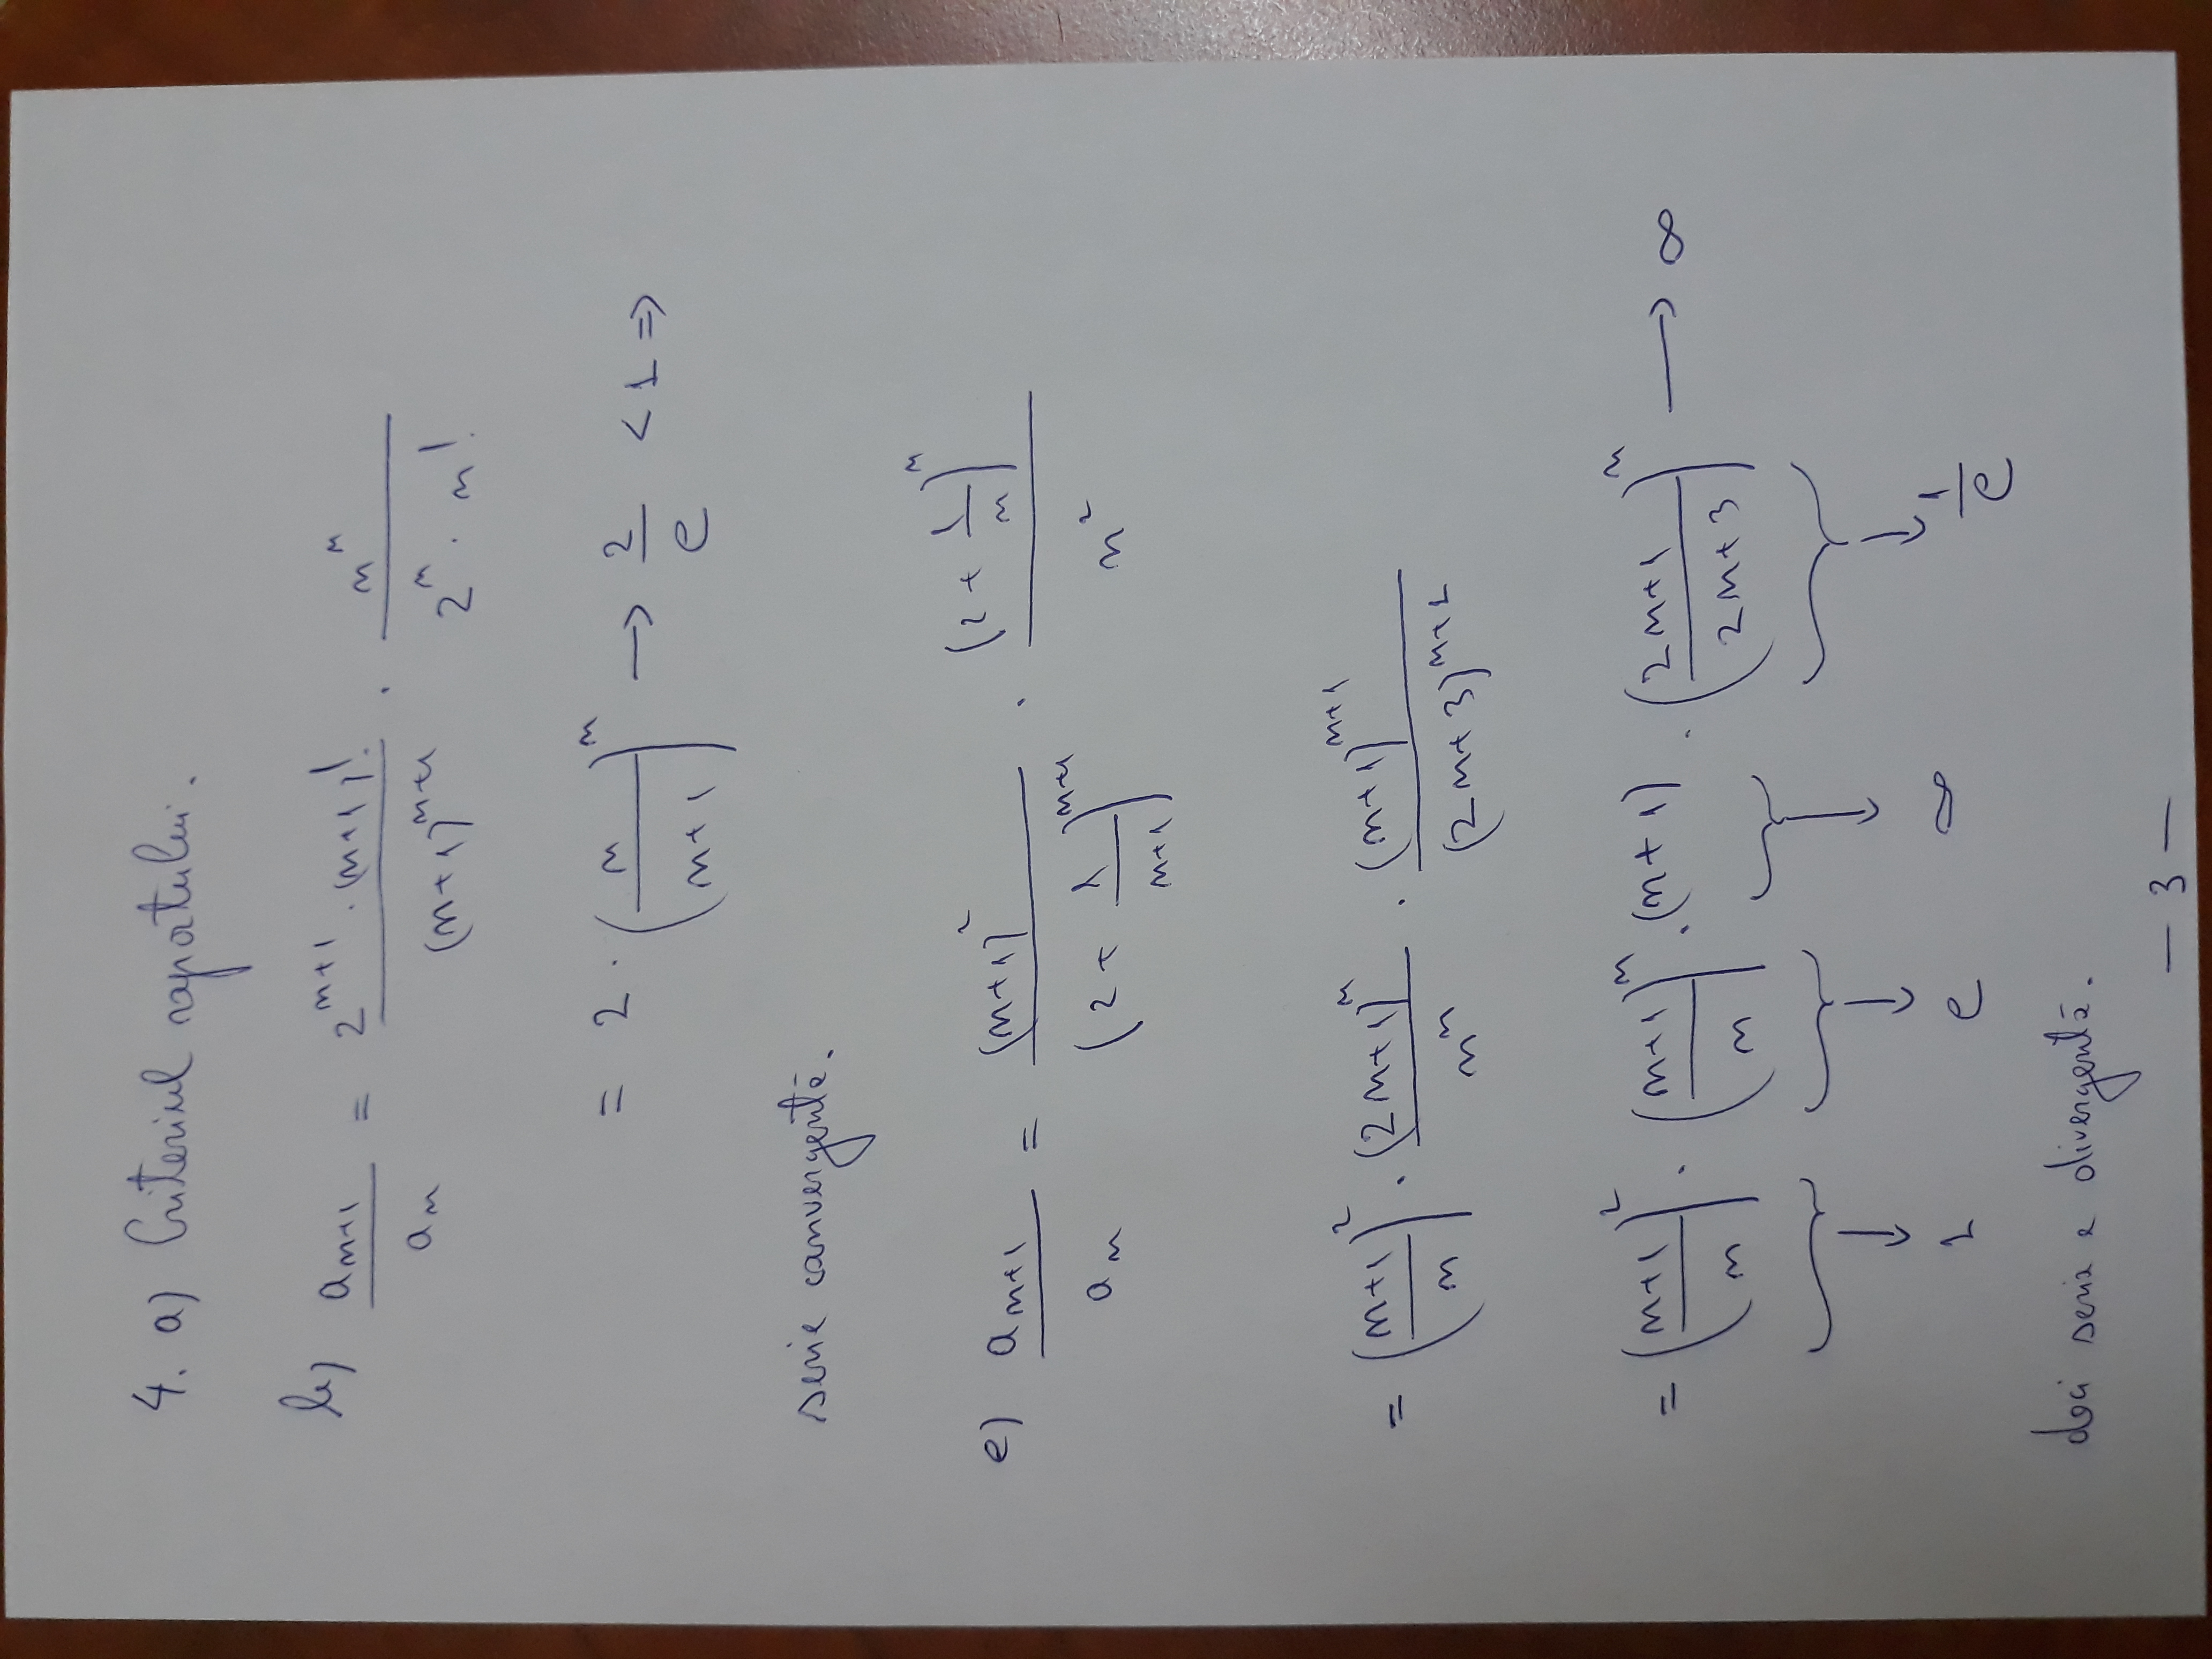 4. a) Criteriul raportului.
b) a_{n+1}/a_n = (2^{n+1} · (n+1)!)/((n+1)^{n+1}) · n^n/(2^n · n!)
= 2 · (n/(n+1))^n → 2/e < 1 ⇒
serie convergentă.
e) a_{n+1}/a_n = (n+1)^2/(2 + 1/(n+1))^{n+1} · (2 + 1/n)^n/n^2
= ((n+1)/n)^2 · (2n+1)^n/n^n · (n+1)^{n+1}/(2n+3)^{n+1}
= ((n+1)/n)^2 · ((n+1)/n)^n · (n+1) · ((2n+1)/(2n+3))^n → ∞
1 e ∞ 1/e
deci seria e divergentă.
— 3 —